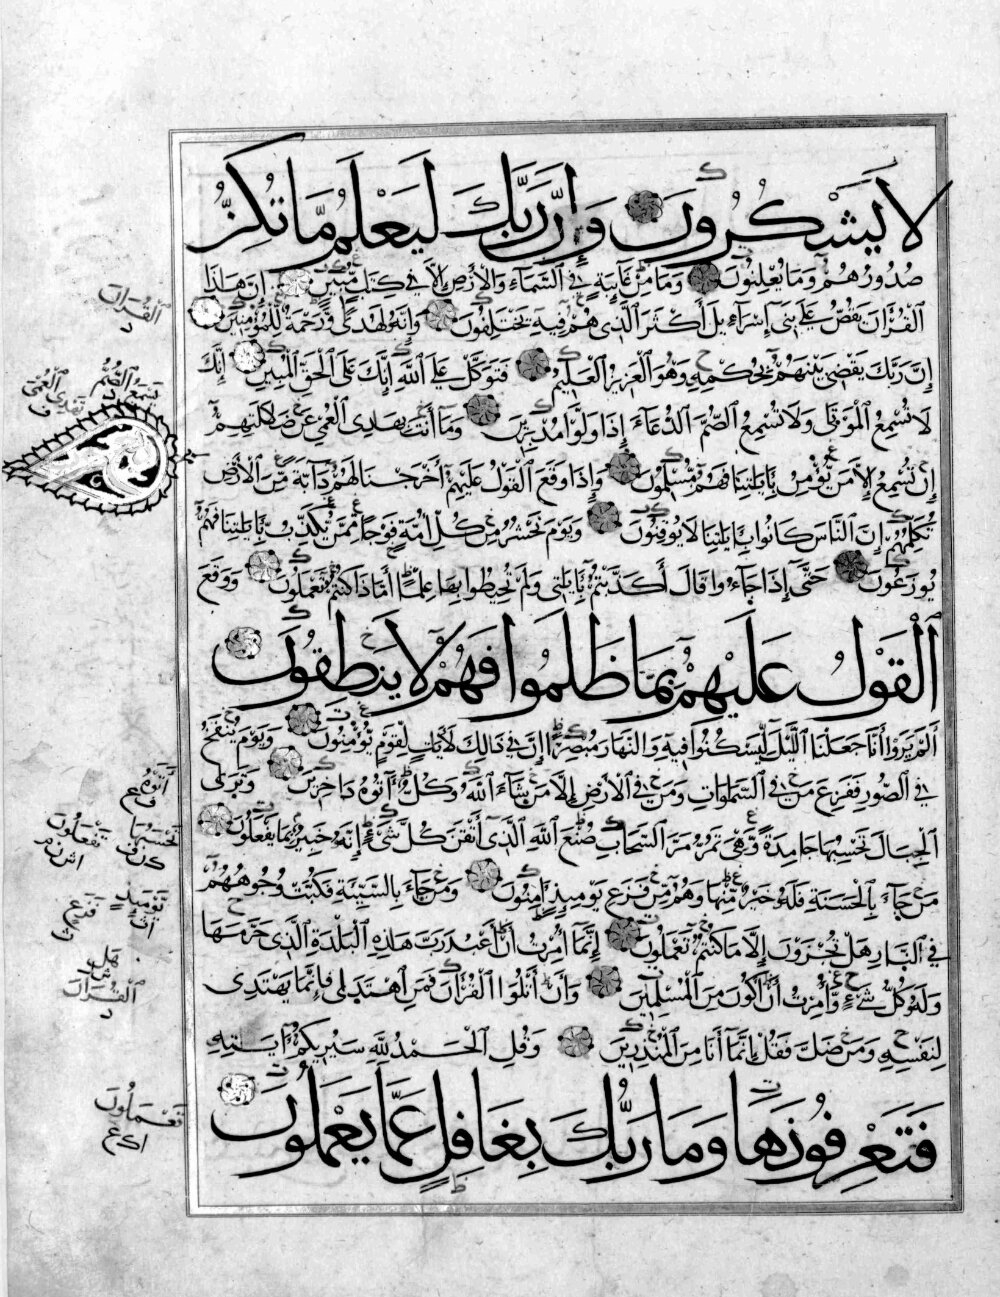 لَا يَشْكُرُونَ وَإِنَّ رَبَّكَ لَيَعْلَمُ مَا تُكِنُّ
صُدُورُهُمْ وَمَا يُعْلِنُونَ وَمَا مِنْ غَائِبَةٍ فِي السَّمَاءِ وَالْأَرْضِ إِلَّا فِي كِتَابٍ مُبِينٍ إِنَّ هَذَا
الْقُرْآنَ يَقُصُّ عَلَى بَنِي إِسْرَاءِيلَ أَكْثَرَ الَّذِي هُمْ فِيهِ يَخْتَلِفُونَ وَإِنَّهُ لَهُدًى وَرَحْمَةٌ لِلْمُؤْمِنِينَ
إِنَّ رَبَّكَ يَقْضِي بَيْنَهُمْ بِحُكْمِهِ وَهُوَ الْعَزِيزُ الْعَلِيمُ فَتَوَكَّلْ عَلَى اللَّهِ إِنَّكَ عَلَى الْحَقِّ الْمُبِينِ إِنَّكَ
لَا تُسْمِعُ الْمَوْتَى وَلَا تُسْمِعُ الصُّمَّ الدُّعَاءَ إِذَا وَلَّوْا مُدْبِرِينَ وَمَا أَنْتَ بِهَادِي الْعُمْيِ عَنْ ضَلَالَتِهِمْ
إِنْ تُسْمِعُ إِلَّا مَنْ يُؤْمِنُ بِآيَاتِنَا فَهُمْ مُسْلِمُونَ وَإِذَا وَقَعَ الْقَوْلُ عَلَيْهِمْ أَخْرَجْنَا لَهُمْ دَابَّةً مِنَ الْأَرْضِ
تُكَلِّمُهُمْ إِنَّ النَّاسَ كَانُوا بِآيَاتِنَا لَا يُوقِنُونَ وَيَوْمَ نَحْشُرُ مِنْ كُلِّ أُمَّةٍ فَوْجًا مِمَّنْ يُكَذِّبُ بِآيَاتِنَا فَهُمْ
يُوزَعُونَ حَتَّى إِذَا جَاءُوا قَالَ أَكَذَّبْتُمْ بِآيَاتِي وَلَمْ تُحِيطُوا بِهَا عِلْمًا أَمَّاذَا كُنْتُمْ تَعْمَلُونَ وَوَقَعَ
الْقَوْلُ عَلَيْهِمْ بِمَا ظَلَمُوا فَهُمْ لَا يَنْطِقُونَ
أَلَمْ يَرَوْا أَنَّا جَعَلْنَا اللَّيْلَ لِيَسْكُنُوا فِيهِ وَالنَّهَارَ مُبْصِرًا إِنَّ فِي ذَلِكَ لَآيَاتٍ لِقَوْمٍ يُؤْمِنُونَ وَيَوْمَ يُنْفَخُ
فِي الصُّورِ فَفَزِعَ مَنْ فِي السَّمَاوَاتِ وَمَنْ فِي الْأَرْضِ إِلَّا مَنْ شَاءَ اللَّهُ وَكُلٌّ أَتَوْهُ دَاخِرِينَ وَتَرَى
الْجِبَالَ تَحْسِبُهَا جَامِدَةً وَهِيَ تَمُرُّ مَرَّ السَّحَابِ صُنْعَ اللَّهِ الَّذِي أَتْقَنَ كُلَّ شَيْءٍ إِنَّهُ خَبِيرٌ بِمَا يَفْعَلُونَ
مَنْ جَاءَ بِالْحَسَنَةِ فَلَهُ خَيْرٌ مِنْهَا وَهُمْ مِنْ فَزَعِ يَوْمِئِذٍ آمِنُونَ وَمَنْ جَاءَ بِالسَّيِّئَةِ فَكُبَّتْ وُجُوهُهُمْ
فِي النَّارِ هَلْ تُجْزَوْنَ إِلَّا مَا كُنْتُمْ تَعْمَلُونَ إِنَّمَا أُمِرْتُ أَنْ أَعْبُدَ رَبَّ هَذِهِ الْبَلْدَةِ الَّذِي حَرَّمَهَا
وَلَهُ كُلُّ شَيْءٍ وَأُمِرْتُ أَنْ أَكُونَ مِنَ الْمُسْلِمِينَ وَأَنْ أَتْلُوَا الْقُرْآنَ فَمَنِ اهْتَدَى فَإِنَّمَا يَهْتَدِي
لِنَفْسِهِ وَمَنْ ضَلَّ فَقُلْ إِنَّمَا أَنَا مِنَ الْمُنْذِرِينَ وَقُلِ الْحَمْدُ لِلَّهِ سَيُرِيكُمْ آيَاتِهِ
فَتَعْرِفُونَهَا وَمَا رَبُّكَ بِغَافِلٍ عَمَّا يَعْمَلُونَ
الْقُرَانَ
د
يَسْمَعُ الصُّمُّ
تَهْدِي الْعُمْيَ
ف
أَتَوْهُ
تَحْسَبُهَا
تَفْعَلُونَ
يَوْمَئِذٍ
فَزَعٍ
هَل
الْقُرَانَ
د
تَعْمَلُونَ